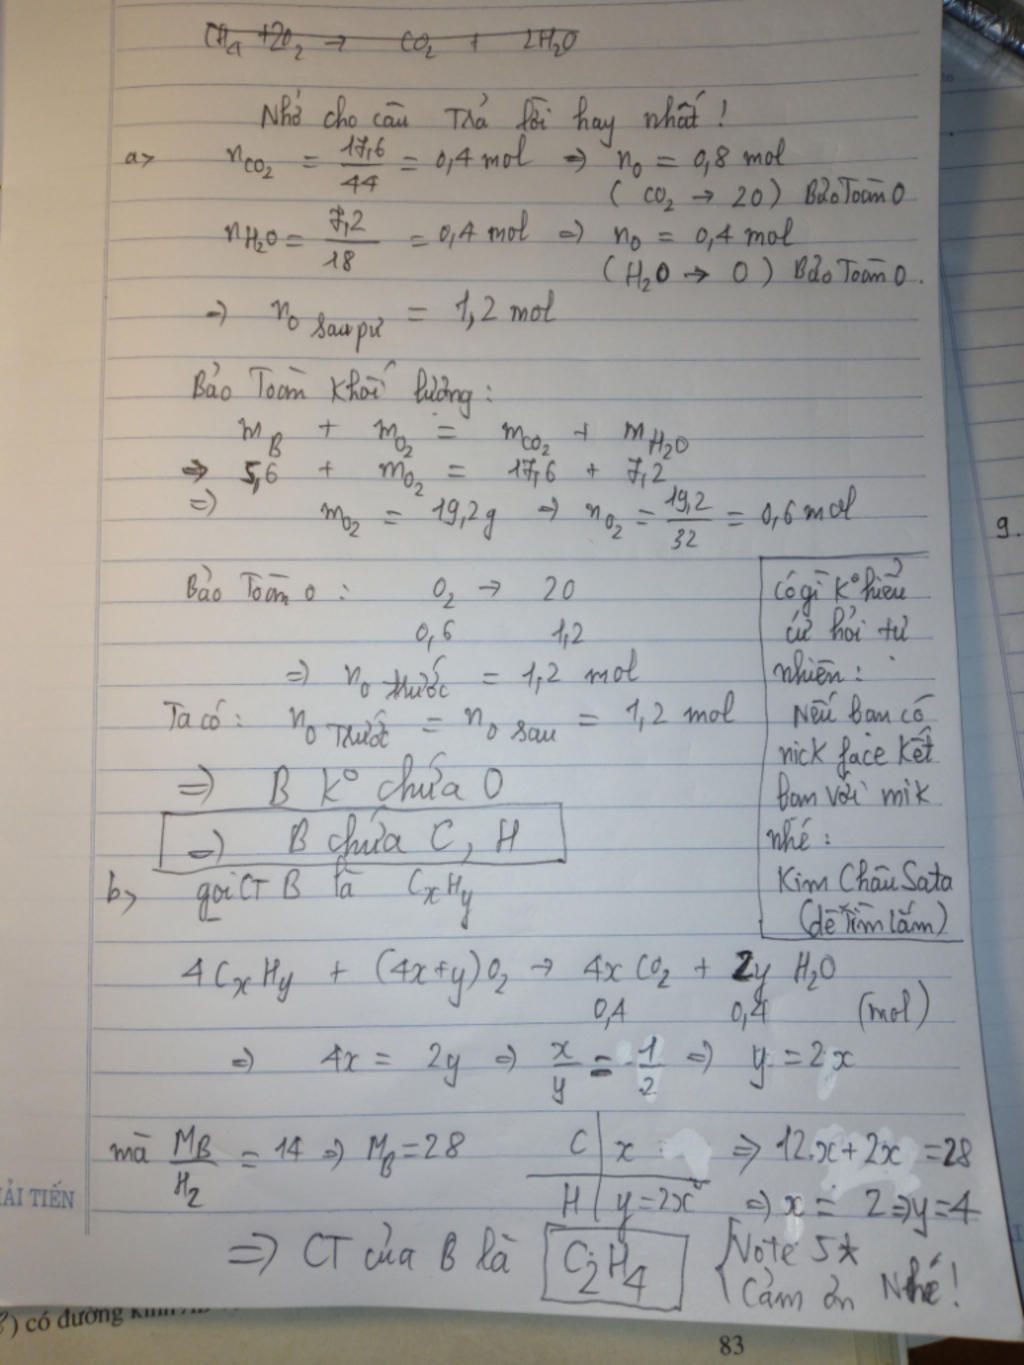 CH4 + 2O2 → CO2 + 2H2O
Nhớ cho câu Trả lời hay nhất!
a> nCO2 = 17,6/44 = 0,4 mol => nO = 0,8 mol
(CO2 → 2O) Bảo Toàn O
nH2O = 7,2/18 = 0,4 mol => nO = 0,4 mol
(H2O → O) Bảo Toàn O.
=> nO sau pứ = 1,2 mol
Bảo Toàn Khối lượng:
mB + mO2 = mCO2 + mH2O
=> 5,6 + mO2 = 17,6 + 7,2
=> mO2 = 19,2g => nO2 = 19,2/32 = 0,6 mol
Bảo Toàn O: O2 → 2O
0,6 1,2
=> nO trước = 1,2 mol
Ta có: nO Trước = nO sau = 1,2 mol
=> B K° chứa O
=> B chứa C, H
Có gì K° hiểu
cứ hỏi tự
nhiên:
Nếu bạn có
nick face Kết
bạn với mik
nhé:
Kim Châu Sata
(dễ tìm lắm)
b> gọi CT B là CxHy
4CxHy + (4x+y)O2 → 4xCO2 + 2y H2O
0,4 0,4 (mol)
=> 4x = 2y => x/y = 1/2 => y = 2x
mà MB/H2 = 14 => MB = 28 C | x => 12.x + 2x = 28
H | y = 2x => x = 2 => y = 4
=> CT của B là C2H4
Note 5*
Cảm ơn Nhé!
9.
ẢI TIẾN
) có đường kính
83